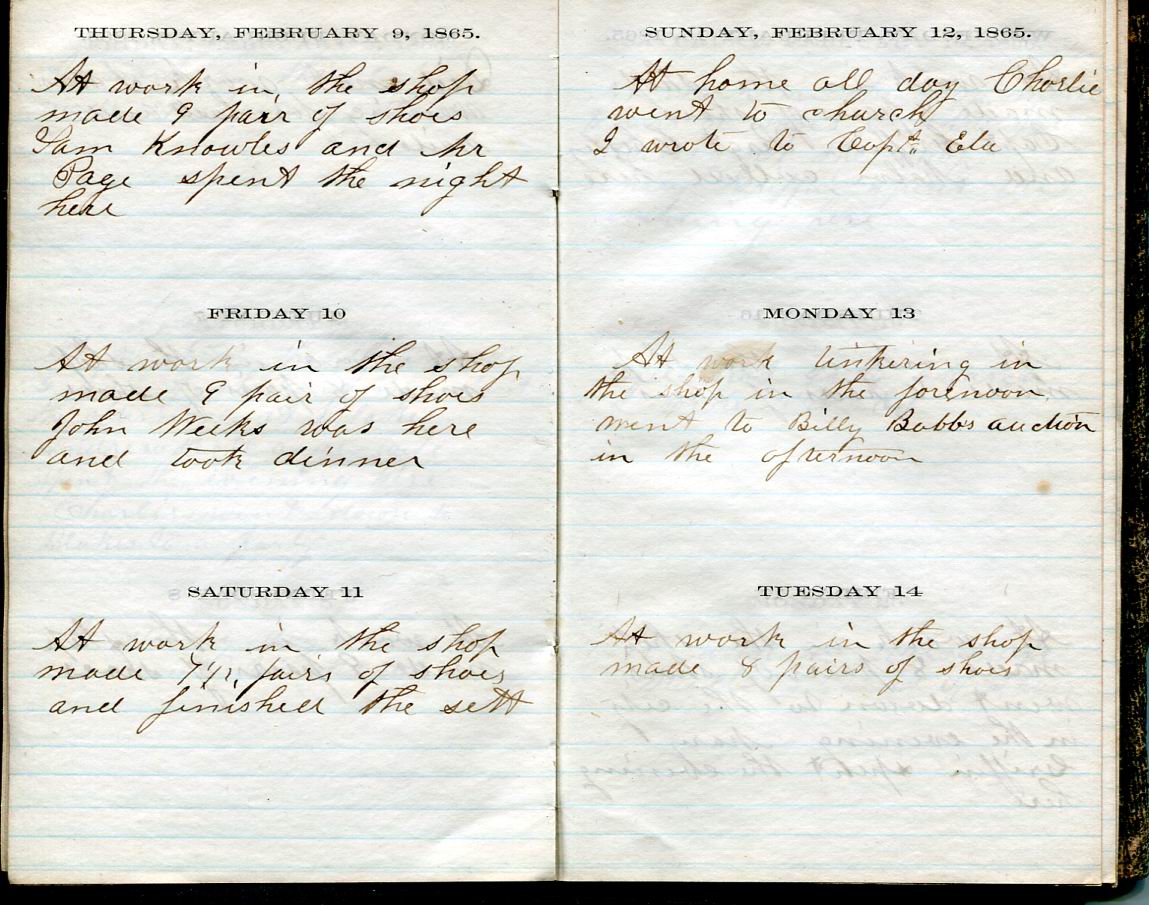 THURSDAY, FEBRUARY 9, 1865.
At work in the shop
made 9 pair of shoes
Sam Knowles and Mr
Page spent the night
here
FRIDAY 10
At work in the shop
made 9 pair of shoes
John Weeks was here
and took dinner
SATURDAY 11
At work in the shop
made 7 1/2 pairs of shoes
and finished the sett
SUNDAY, FEBRUARY 12, 1865.
At home all day Charlie
went to church
I wrote to Capt. Ela
MONDAY 13
At work tinkering in
the shop in the forenoon
went to Billy Babbs auction
in the afternoon
TUESDAY 14
At work in the shop
made 8 pairs of shoes